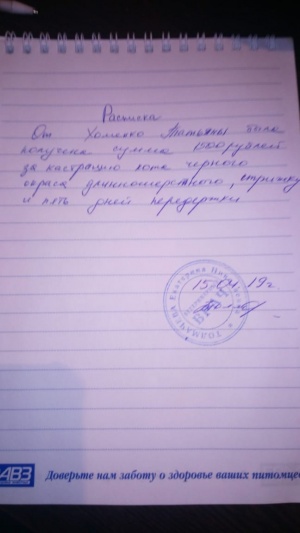 Расписка
От Хоменко Татьяны была
получена сумма 1500 рублей
за кастрацию кота черного
окраса длинношерстного, стрижку
и пять дней передержки
15.04.19г
ТОЛМАЧЕВА Екатерина
ВРАЧ
АВЗ Доверьте нам заботу о здоровье ваших питомцев